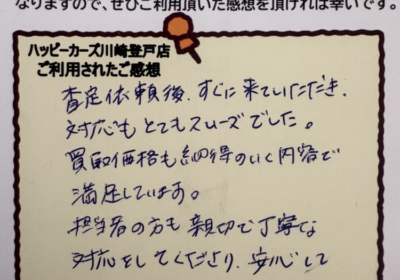 なりますので、ぜひご利用頂いた感想を頂ければ幸いです。
ハッピーカーズ川崎登戸店
ご利用されたご感想
査定依頼後、すぐに来ていただき、
対応もとてもスムーズでした。
買取価格も納得のいく内容で
満足しています。
担当者の方も親切で丁寧な
対応をしてくださり、安心して